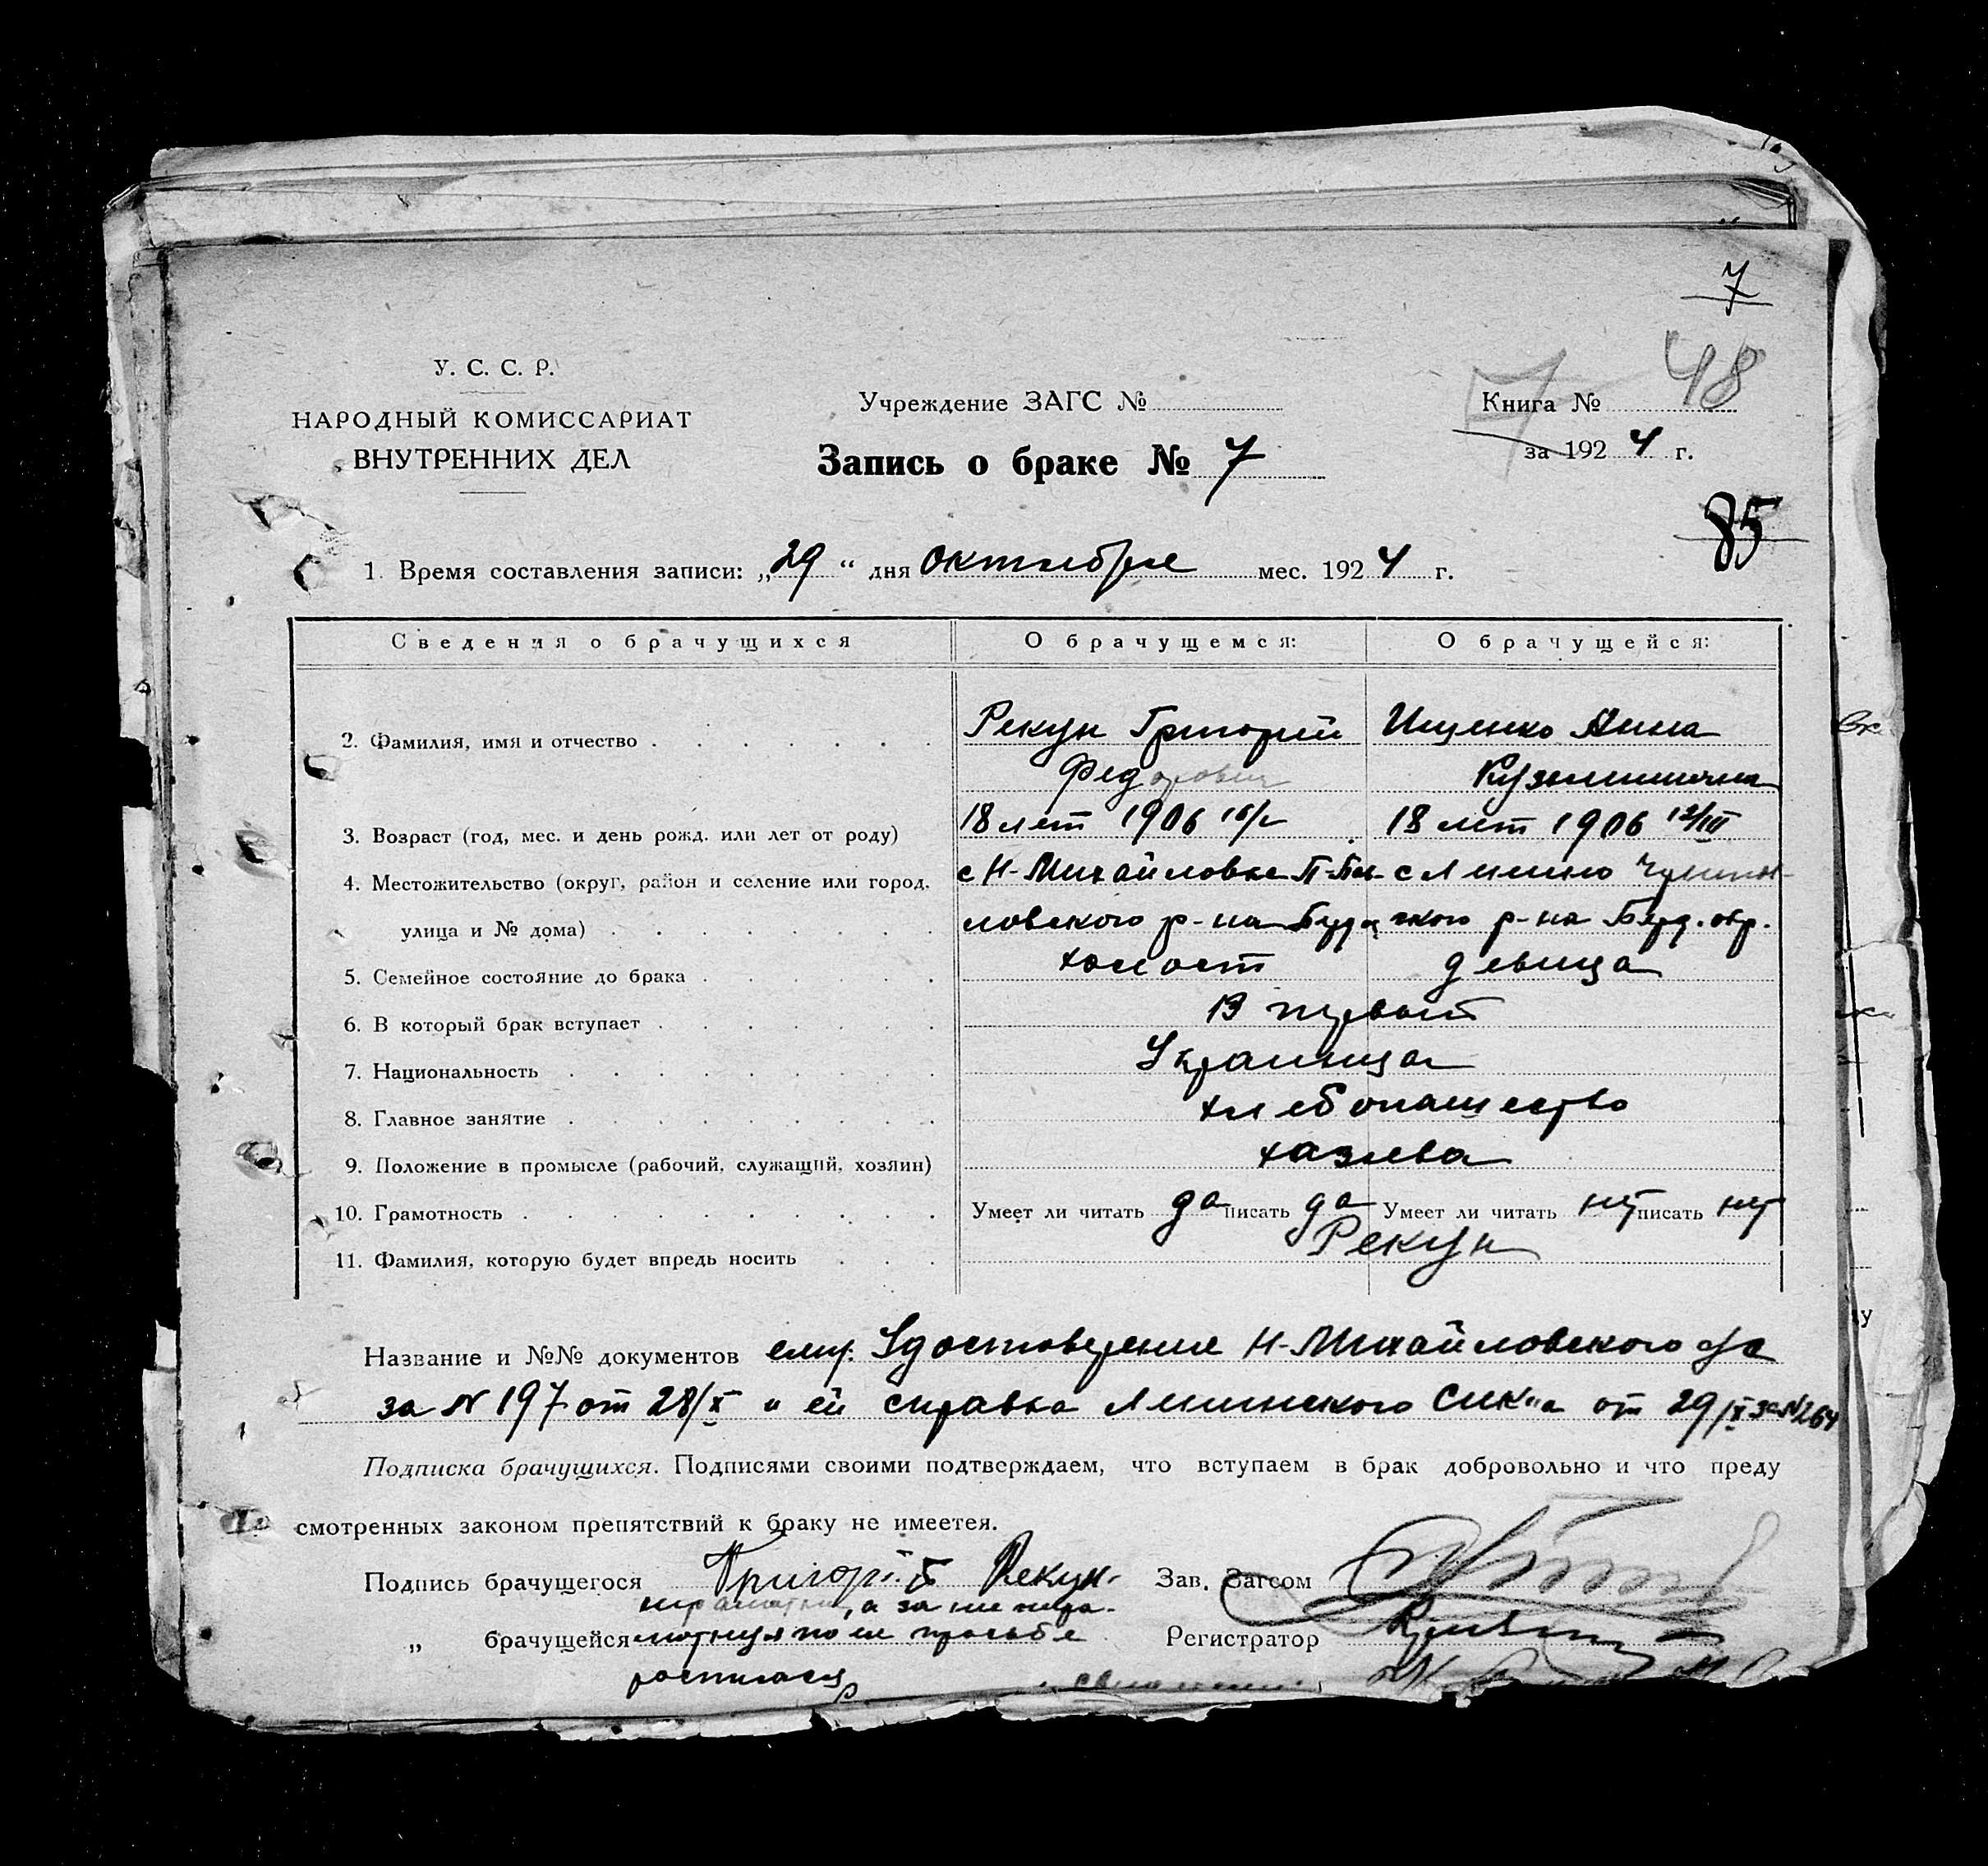 7
48
У. С. С. Р.
НАРОДНЫЙ КОМИССАРИАТ
ВНУТРЕННИХ ДЕЛ
Учреждение ЗАГС №
Книга №
7
за 1924 г.
Запись о браке № 7
85
1. Время составления записи: „29“ дня октября мес. 1924 г.
Сведения о брачущихся О брачущемся: О брачущейся:
2. Фамилия, имя и отчество Рекун Григорий Ищенко Анна
Федорович Кузьминична
3. Возраст (год, мес. и день рожд. или лет от роду) 18 лет 1906 18 лет 1906 12/III
4. Местожительство (округ, район и селение или город, с Н-Михайловка с
улица и № дома) ловского р-на р-на Берд. окр.
5. Семейное состояние до брака холост девица
6. В который брак вступает В первый
7. Национальность Украинца
8. Главное занятие хлебопашество
9. Положение в промысле (рабочий, служащий, хозяин) хазяева
10. Грамотность Умеет ли читать да писать да Умеет ли читать нет писать нет
11. Фамилия, которую будет впредь носить Рекун
Название и №№ документов ему: Удостоверение Н-Михайловского с/с
за N 197 от 28/X и ей справка от 29/X за N 264
Подписка брачущихся. Подписями своими подтверждаем, что вступаем в брак добровольно и что преду
смотренных законом препятствий к браку не имеется.
Подпись брачущегося Григорій Рекун Зав. Загсом
неграмотна, а за не негра-
„ брачущейся мотную по ее просьбе Регистратор
росписался